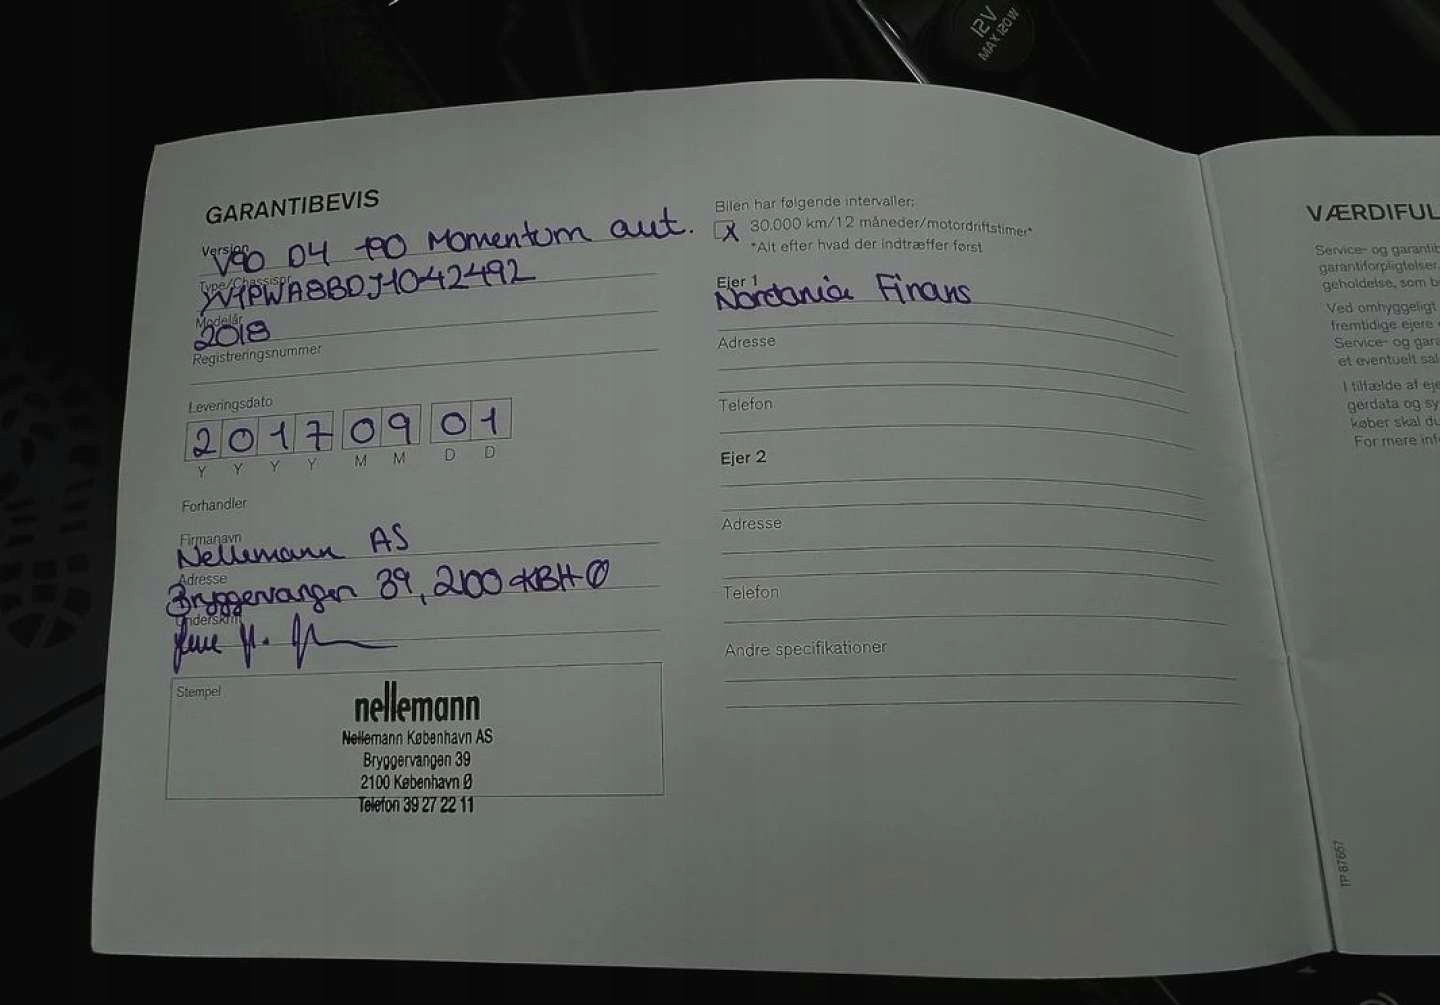 12V
MAX 120W
GARANTIBEVIS
Version
V90 D4 190 Momentum aut.
Type/Chassisnr.
YV1PWA8BDJ1042492
Modelår
2018
Registreringsnummer
Leveringsdato
2 0 1 7 0 9 0 1
Y Y Y Y M M D D
Forhandler
Firmanavn
Nellemann AS
Adresse
Bryggervangen 39, 2100 KBH Ø
Underskrift
Stempel
nellemann
Nellemann København AS
Bryggervangen 39
2100 København Ø
Telefon 39 27 22 11
Bilen har følgende intervaller:
X 30.000 km/12 måneder/motordriftstimer*
*Alt efter hvad der indtræffer først
Ejer 1
Nordania Finans
Adresse
Telefon
Ejer 2
Adresse
Telefon
Andre specifikationer
VÆRDIFUL
Service- og garantib
garantiforpligtelser.
geholdelse, som b
Ved omhyggeligt
fremtidige ejere
Service- og gara
et eventuelt sal
I tilfælde af eje
gerdata og sy
køber skal du
For mere info
TP 87667